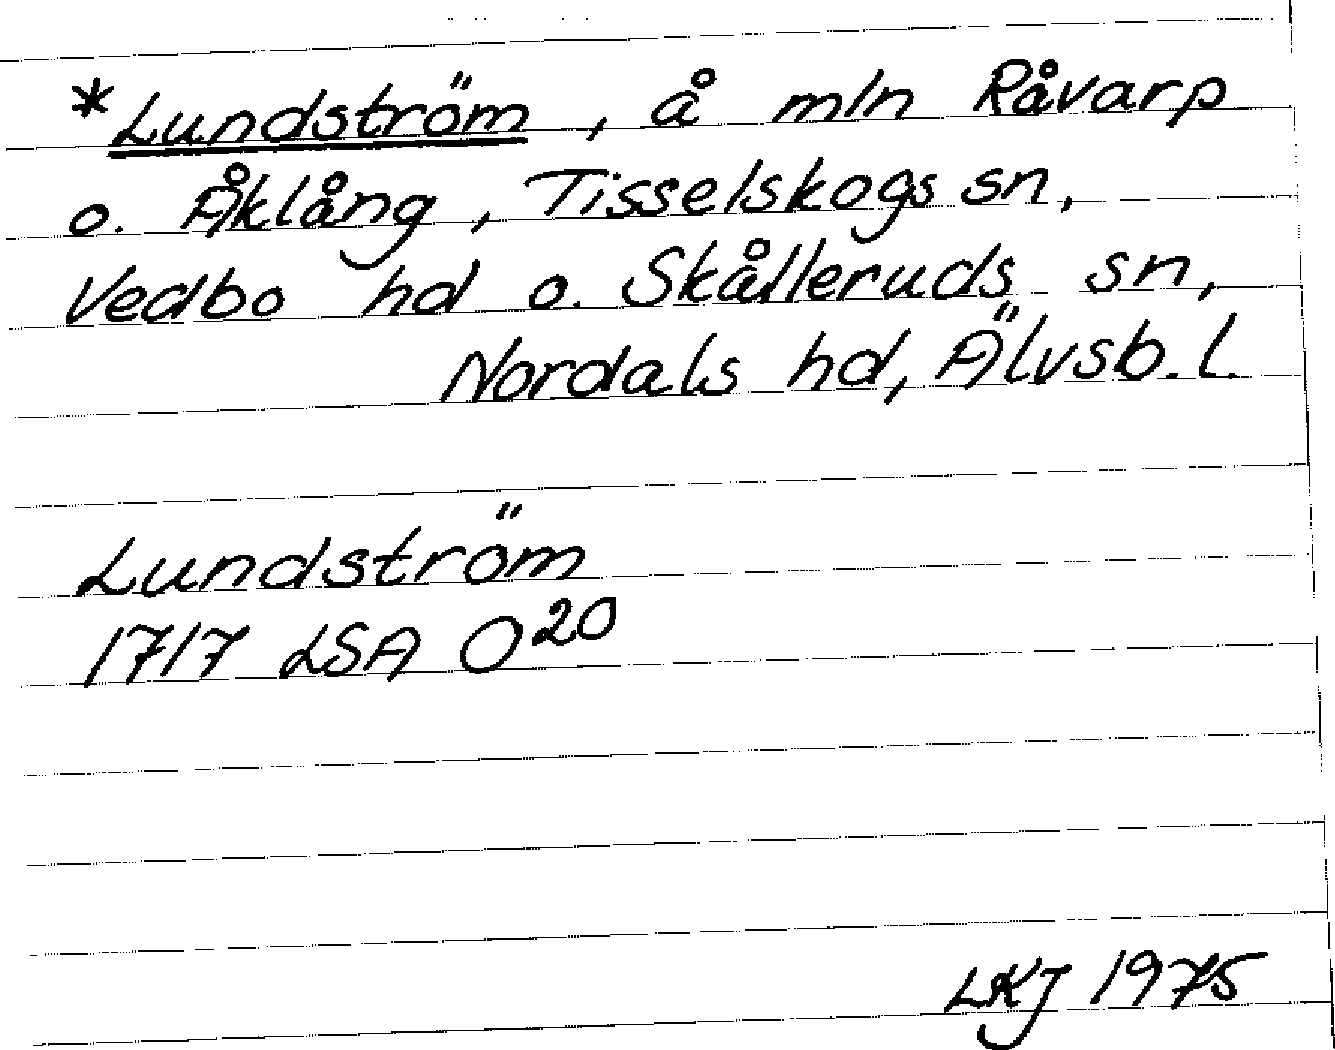 *Lundström, å mln Råvarp
o. Åklång, Tisselskogs sn,
Vedbo hd o. Skålleruds sn,
Nordals hd, Älvsb. l.
Lundström
1717 LSA O²⁰
LKJ 1975